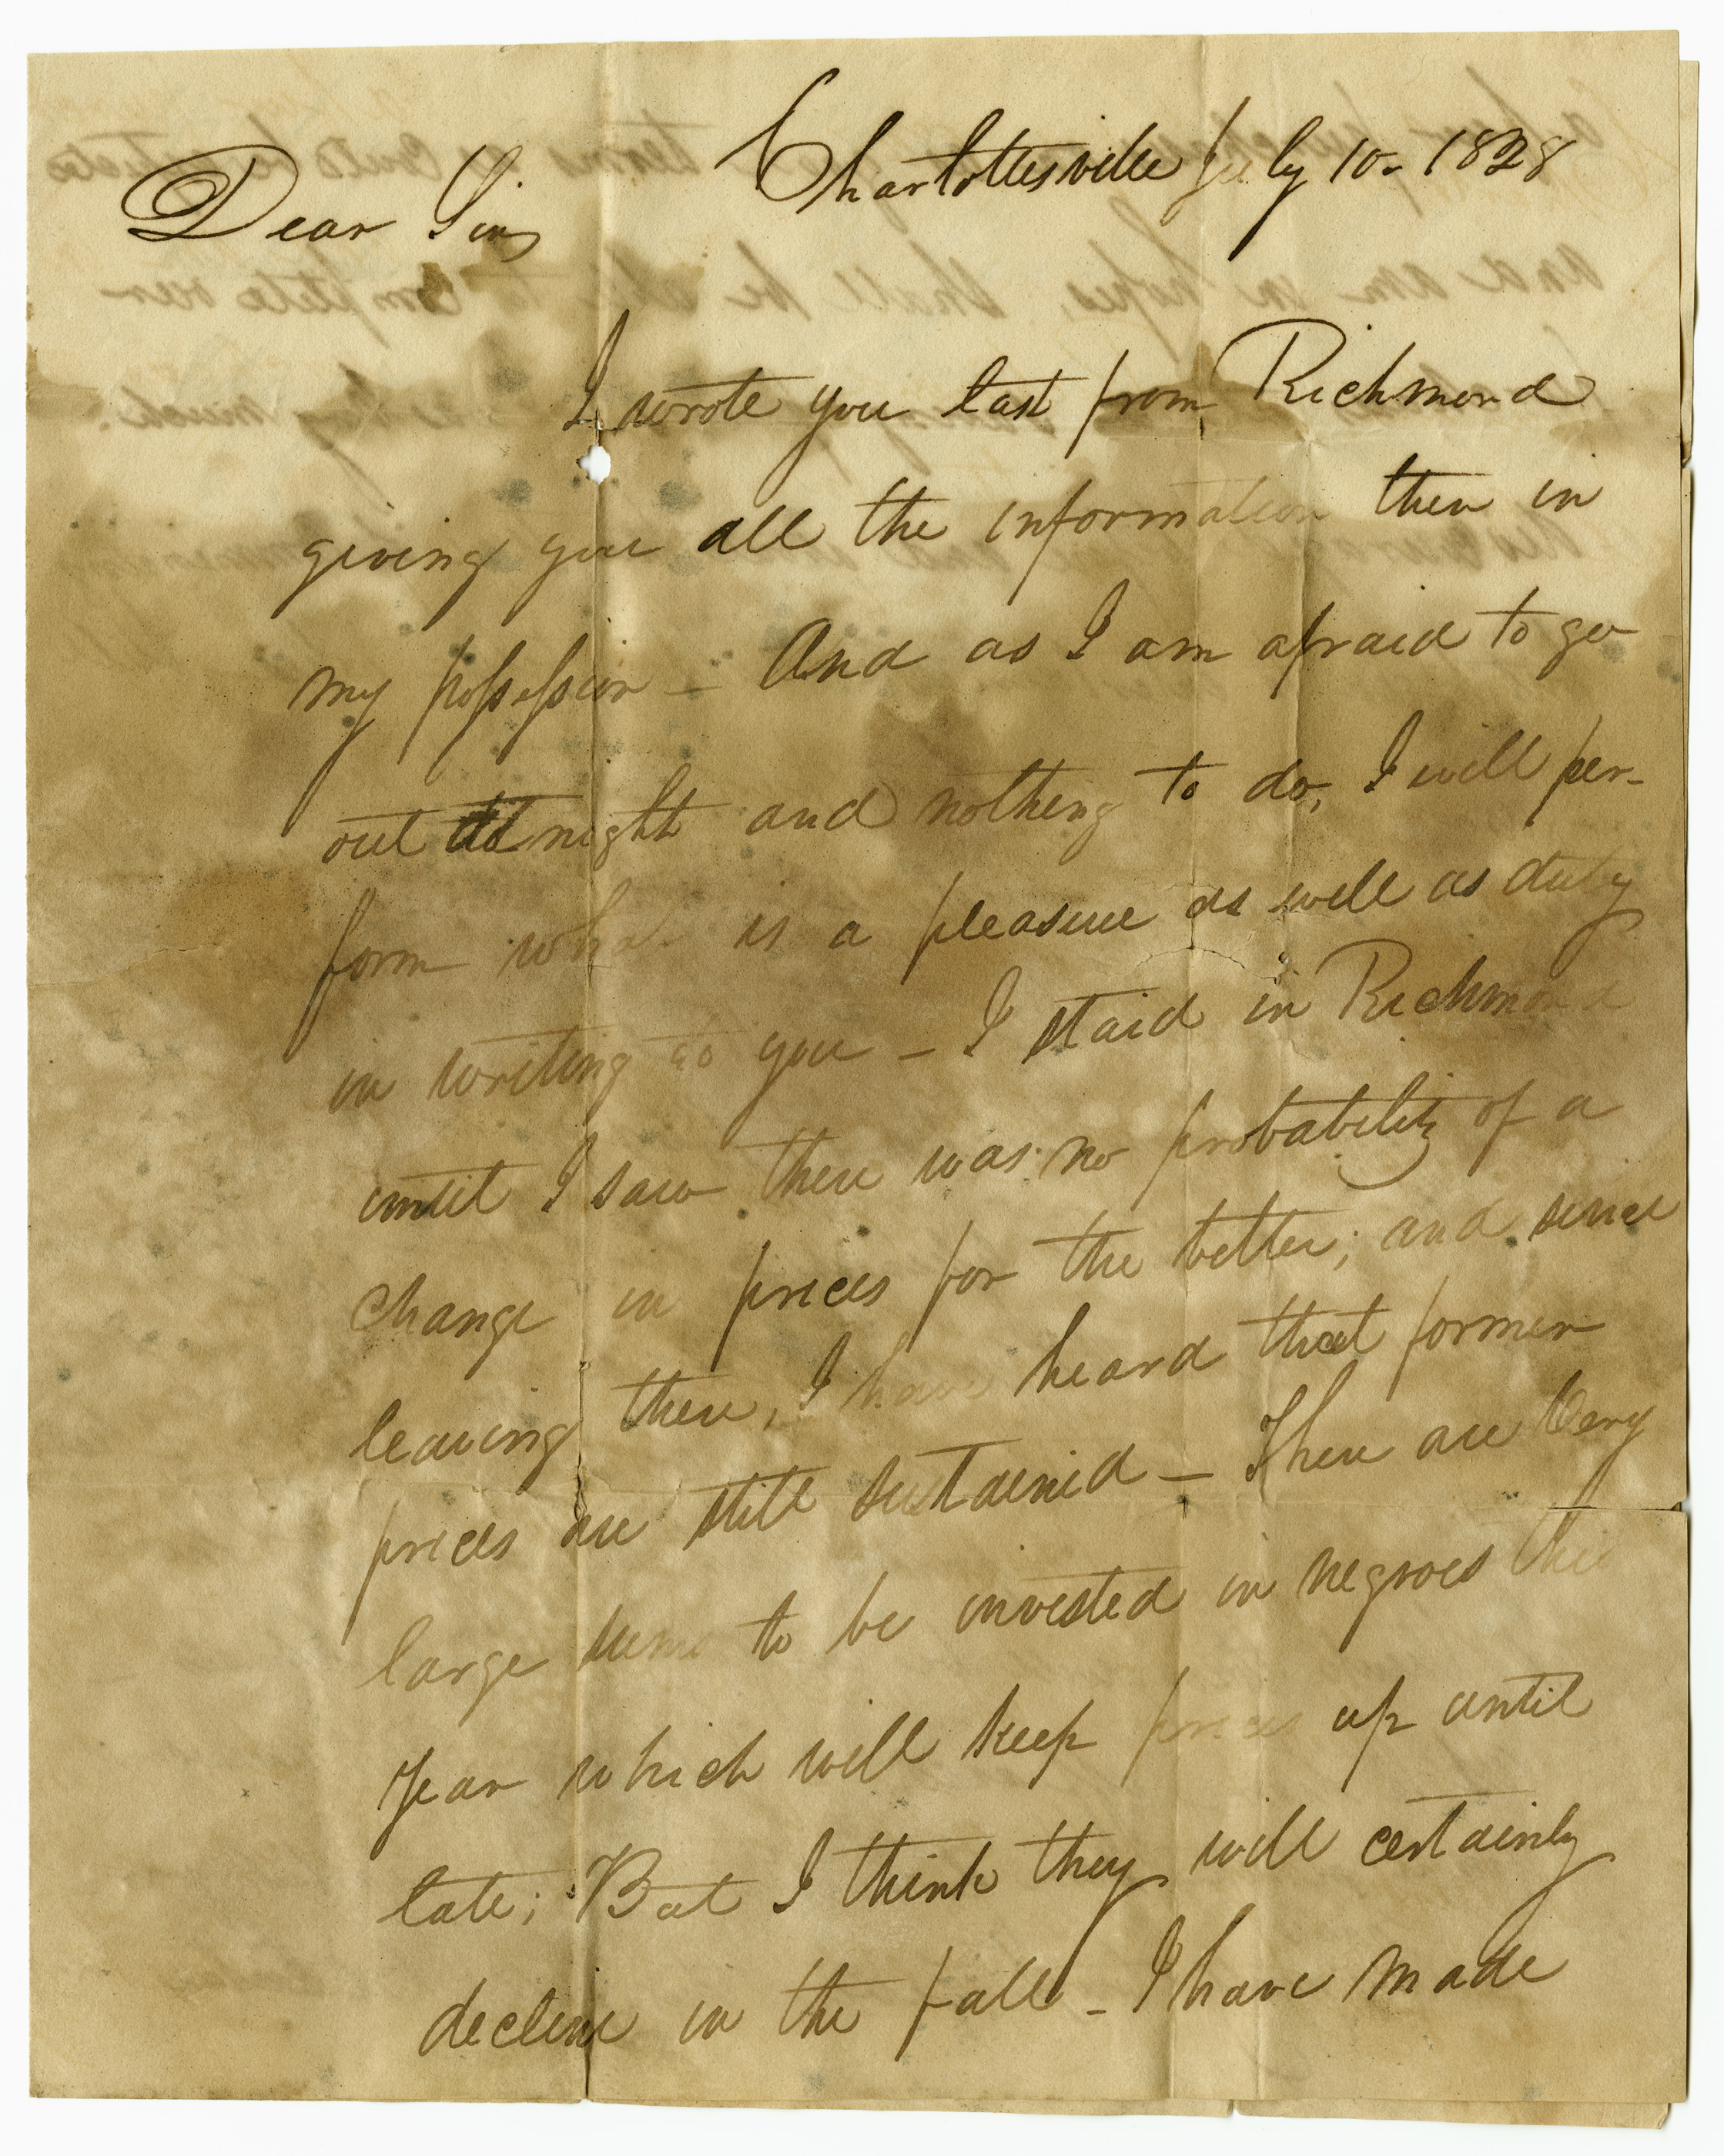 Charlottesville July 10 - 1828
Dear Sir,
I wrote you last from Richmond
giving you all the information then in
my possession — And as I am afraid to go
out at night and nothing to do, I will per-
form what is a pleasure as well as duty
in writing to you — I staid in Richmond
until I saw there was no probability of a
change in prices for the better; and since
leaving there, I have heard that former
prices are still sustained — There are very
large sums to be invested in negroes this
year which will keep prices up until
late; But I think they will certainly
decline in the fall — I have made